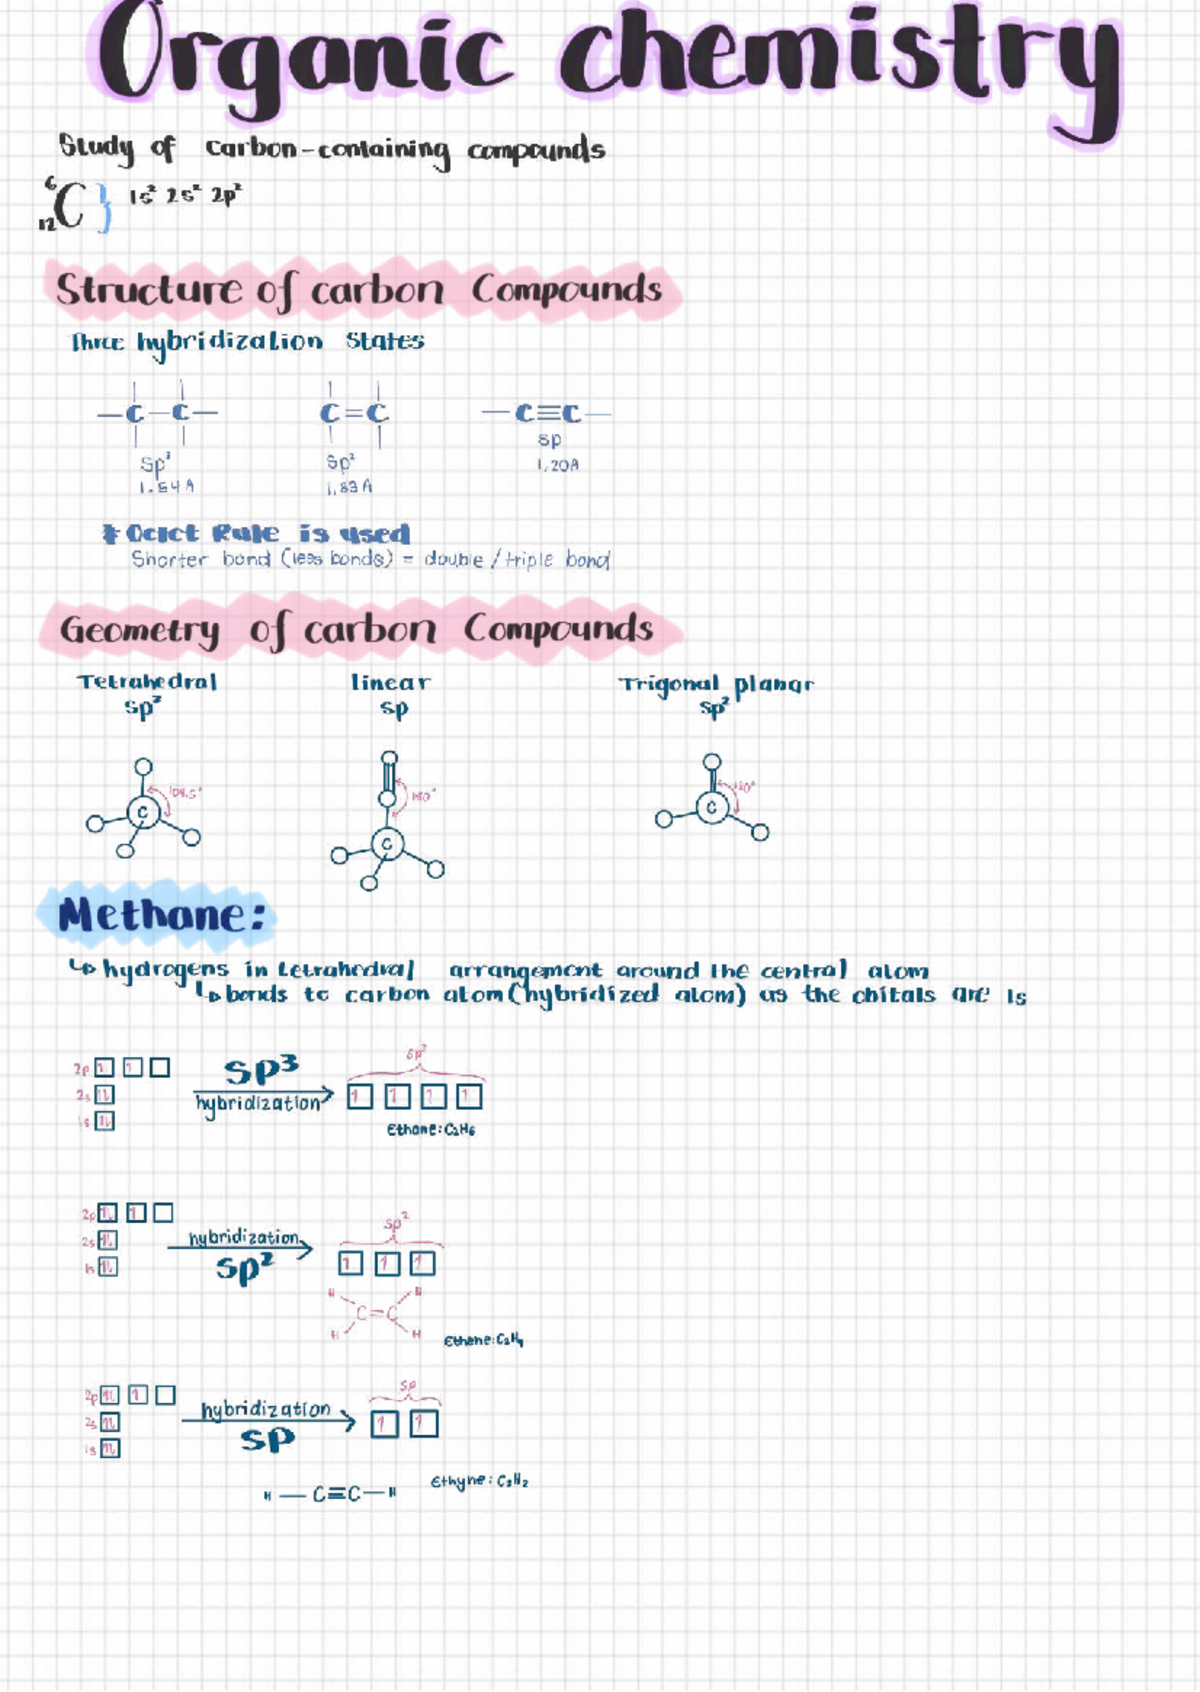 Organic chemistry
Study of carbon-containing compounds
6
12 C } 1s² 2s² 2p²
Structure of carbon Compounds
Three hybridization States
—C—C— C=C —C≡C—
sp
Sp³ Sp² 1,20A
1.54A 1,33A
* Octet Rule is used
Shorter bond (less bonds) = double / triple bond
Geometry of carbon Compounds
Tetrahedral linear Trigonal planar
sp³ sp sp²
C 109.5°
180° C
C 120°
Methane:
↳ hydrogens in tetrahedral arrangement around the central atom
↳ bonds to carbon atom (hybridized atom) as the orbitals are 1s
2p 1 1
2s 1L
1s 1L
sp³
hybridization
sp³
1 1 1 1
Ethane: C₂H₆
2p 1L 1
2s 1L
1s 1L
hybridization
sp²
sp²
1 1 1
H H
C=C
H H
Ethene: C₂H₄
2p 1L 1
2s 1L
1s 1L
hybridization
sp
sp
1 1
Ethyne: C₂H₂
H — C≡C — H